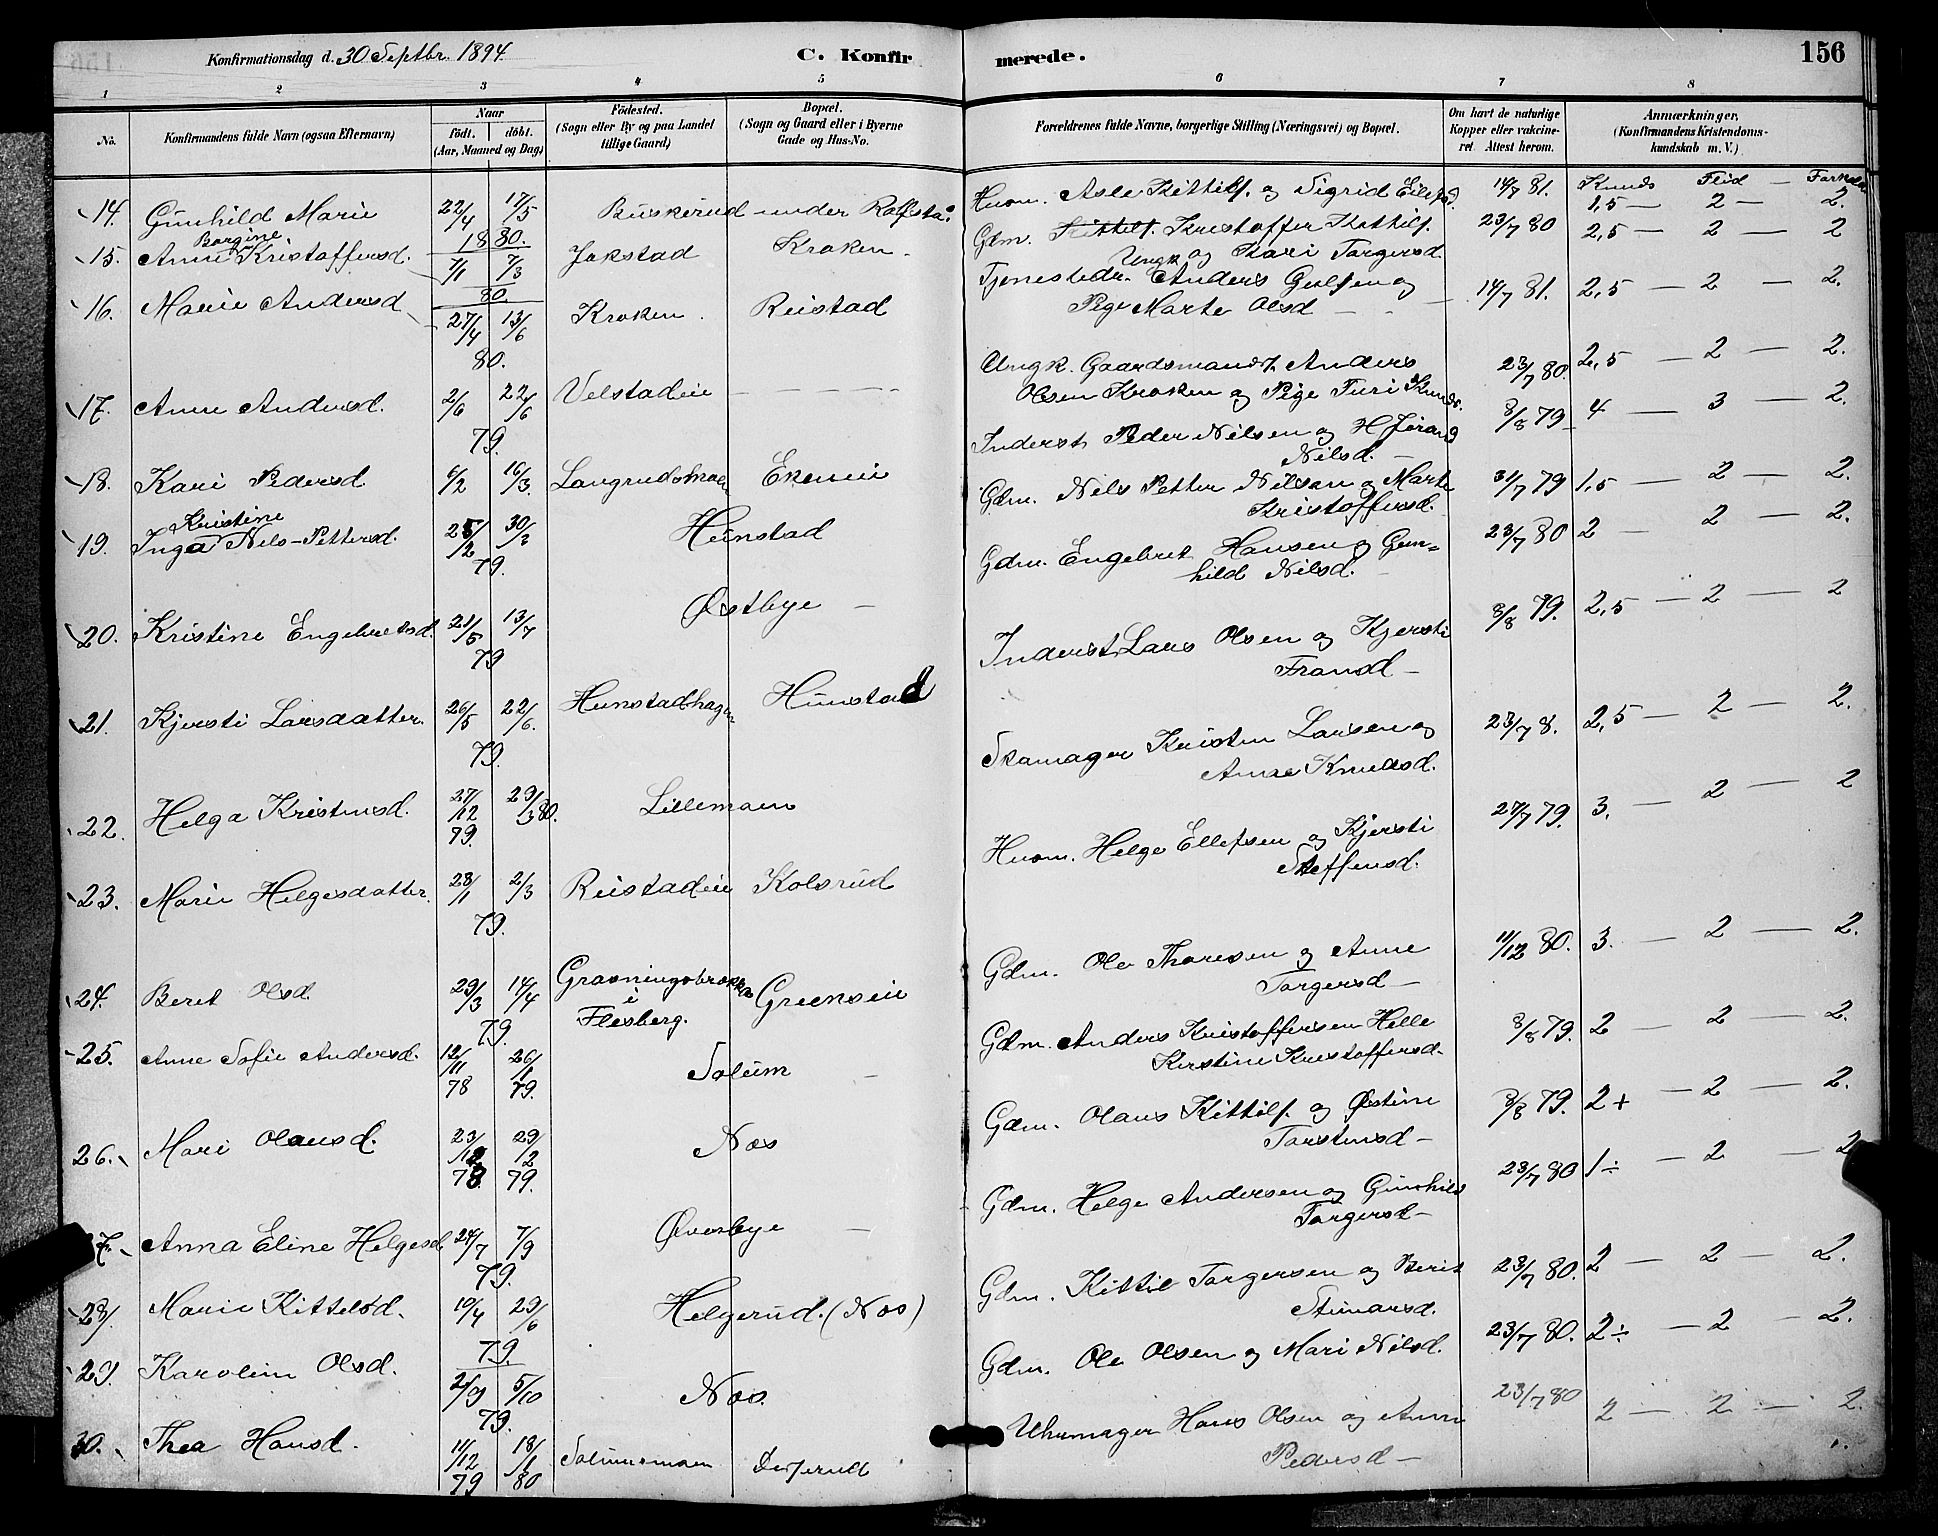 Konfirmationsdag d. 30 Septbr. 1894.
C. Konfirmerede.
156
1 2 3 4 5 6 7 8
No.
Konfirmandens fulde Navn (ogsaa Efternavn)
Naar
födt. döbt.
(Aar, Maaned og Dag)
Födested.
(Sogn eller By og paa Landet
tillige Gaard)
Bopæl.
(Sogn og Gaard eller i Byerne
Gade og Hus-No.
Forældrenes fulde Navne, borgerlige Stilling (Næringsvei) og Bopæl.
Om havt de naturlige
Kopper eller vakcine-
ret Attest herom.
Anmærkninger,
(Konfirmandens Kristendoms-
kundskab m. V.)
Kunds Flid —
14. Gunhild Marie 22/4 17/5 1880. Buskerud under
Husm. Asle Kittils. og Sigrid 14/7 81. 1,5 — 2 — 2.
15. Anne Borgine Kristoffersd. 7/1 7/3 80. Jokstad Kroken
Gdm. Kittils. Kristoffer Kittils. og Kari Torgersd. 23/7 80 2,5 — 2 — 2
16. Marie Andersd 27/4 13/6 80. Kroken. Reistad
Ungk. Tjenestedr. Anders Gulsen og
Pige Marte Olsd — 14/7 81. 2,5 — 2 — 2.
17. Anne Andersd. 2/6 22/6 79. Velstadeie
Ungk. Gaardsmands. Anders
Olsen Kroken og Pige Turi Knuds. 23/7 80. 2,5 — 2 — 2.
18. Kari Pedersd 6/2 16/3. Langrudsmoen Ekeneie
Inderst Peder Nilsen og Hjørand
Nilsd. — 8/8 79 4 — 3 — 2.
19. Inga Kristine Nils-Pettersd. 25/12 30/3 79. Hunstad
Gdm. Nils Petter Nilsen og Marte
Kristoffersd. 31/7 79 1,5 — 2 — 2.
20. Kristine Engebretsd. 21/5 13/7 79 Østbye —
Gdm. Engebret Hansen og Gun=
hild Nilsd. — 23/7 80 2 — 2 — 2.
21. Kjersti Larsdatter. 26/5 22/6. 79. Hunstadhagen Hunstad
Inderst Lars Olsen og Kjersti
Fransd — 8/8 79. 2,5 — 2 — 2
22. Helga Kristensd. 27/12 79. 29/3 80. Lillemoen
Skomager Kristen Larsen og
Anne Knudsd. 23/7 8. 2,5 — 2 — 2.
23. Marie Helgesdatter. 28/1 2/3 79. Reistadeie Kolsrud
Husm. Helge Ellefsen og Kjersti
Steffensd. 27/7 79. 3. — 2 — 2
24. Beret Olsd. 29/3 14/4 79. i
Flesberg. Greenseie
Gdm. Ole Thoresen og Anne
Torgersd — 11/12 80. 3. — 2 — 2.
25. Anne Sofie Andersd. 12/11 78 26/1 79. Solum —
Gdm. Anders Kristoffersen Helle
Kirstine Kristoffersd. 8/8 79. 2 — 2 — 2.
26. Mari Olausd. 23/12 78 29/2 79. Næs
Gdm. Olaus Kittils. og Østine
Torstensd — 8/8 79. 2+ — 2 — 2.
27. Anna Eline Helgesd 24/7 7/9 79. Øverbye —
Gdm. Helge Andersen og Gunhild
Torgersd — 23/7 80 1÷ — 2 — 2
28. Marie Kittelsd. 19/4 29/6 79. Helgerud. (Næs)
Gdm. Kittil Torgersen og Berit
Steinarsd. 23/7 80. 2 — 2 — 2.
29. Karoline Olsd. 2/9 5/10 79. Næs.
Gdm. Ole Olsen og Mari Nilsd. 23/7 80. 2÷ — 2 — 2.
30. Thea Hansd. 11/12 79 18/1 80 Solumsmoen
Uhrmager Hans Olsen og Anne
Pedersd — 23/7 80 2 — 2 — 2.